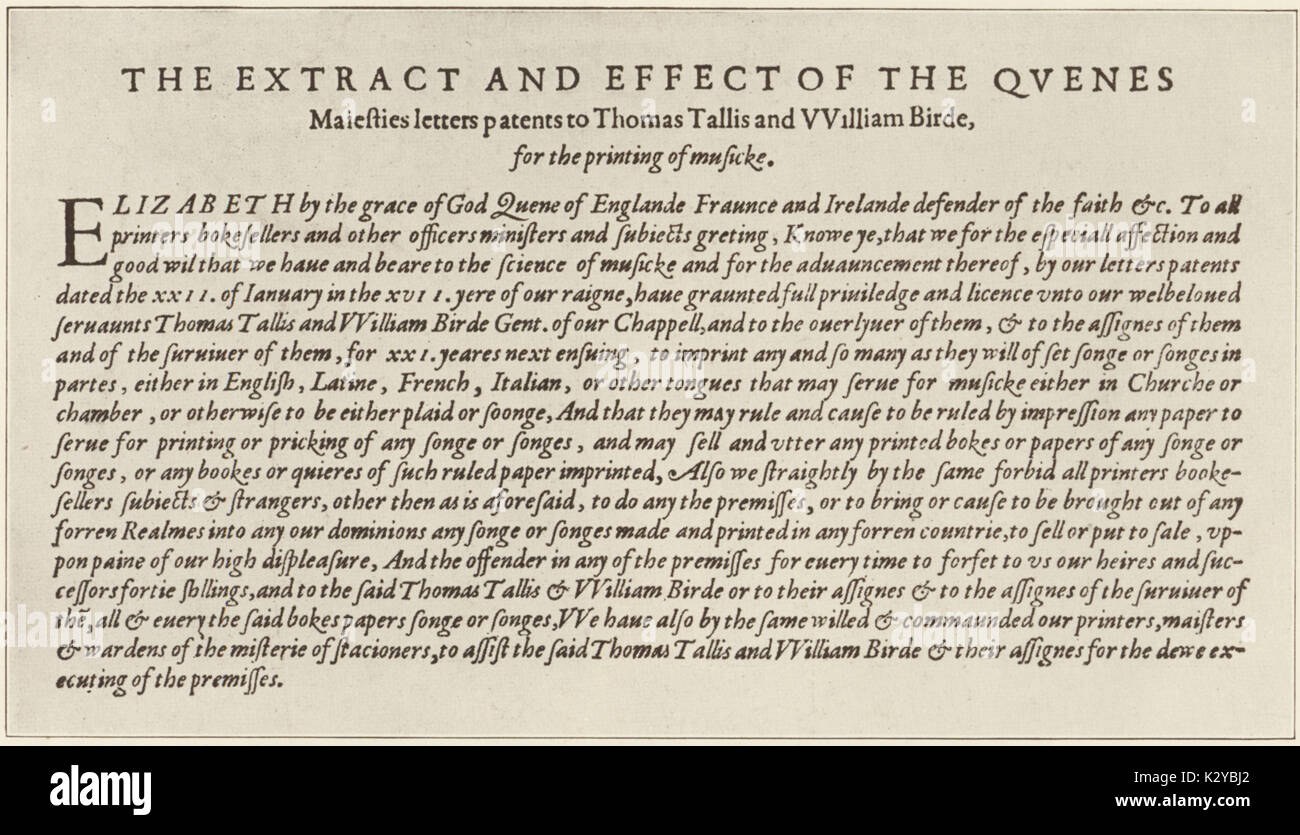 THE EXTRACT AND EFFECT OF THE QVENES
Maieſties letters patents to Thomas Tallis and VVilliam Birde,
for the printing of muſicke.
ELIZABETH by the grace of God Quene of Englande Fraunce and Irelande defender of the faith &c. To all
printers bokeſellers and other officers miniſters and ſubiects greting, Knowe ye, that we for the eſpeciall affection and
good wil that we haue and beare to the ſcience of muſicke and for the aduauncement thereof, by our letters patents
dated the xxII. of Ianuary in the xvII. yere of our raigne, haue graunted full priuiledge and licence vnto our welbeloued
ſeruaunts Thomas Tallis and VVilliam Birde Gent. of our Chappell, and to the ouerlyuer of them, & to the aſſignes of them
and of the ſuruiuer of them, for xxI. yeares next enſuing, to imprint any and ſo many as they will of ſet ſonge or ſonges in
partes, either in Engliſh, Latine, French, Italian, or other tongues that may ſerue for muſicke either in Churche or
chamber, or otherwiſe to be either plaid or ſoonge, And that they may rule and cauſe to be ruled by impreſſion any paper to
ſerue for printing or pricking of any ſonge or ſonges, and may ſell and vtter any printed bokes or papers of any ſonge or
ſonges, or any bookes or quieres of ſuch ruled paper imprinted, Alſo we ſtraightly by the ſame forbid all printers booke-
ſellers ſubiects & ſtrangers, other then as is aforeſaid, to do any the premiſſes, or to bring or cauſe to be brought out of any
forren Realmes into any our dominions any ſonge or ſonges made and printed in any forren countrie, to ſell or put to ſale, vp-
pon paine of our high diſpleaſure, And the offender in any of the premiſſes for euery time to forfet to vs our heires and ſuc-
ceſſors fortie ſhllings, and to the ſaid Thomas Tallis & VVilliam Birde or to their aſſignes & to the aſſignes of the ſuruiuer of
thẽ, all & euery the ſaid bokes papers ſonge or ſonges, VVe haue alſo by the ſame willed & commaunded our printers, maiſters
& wardens of the miſterie of ſtacioners, to aſſiſt the ſaid Thomas Tallis and VVilliam Birde & their aſſignes for the dewe ex-
ecuting of the premiſſes.
alamy
Image ID: K2YBJ2
www.alamy.com